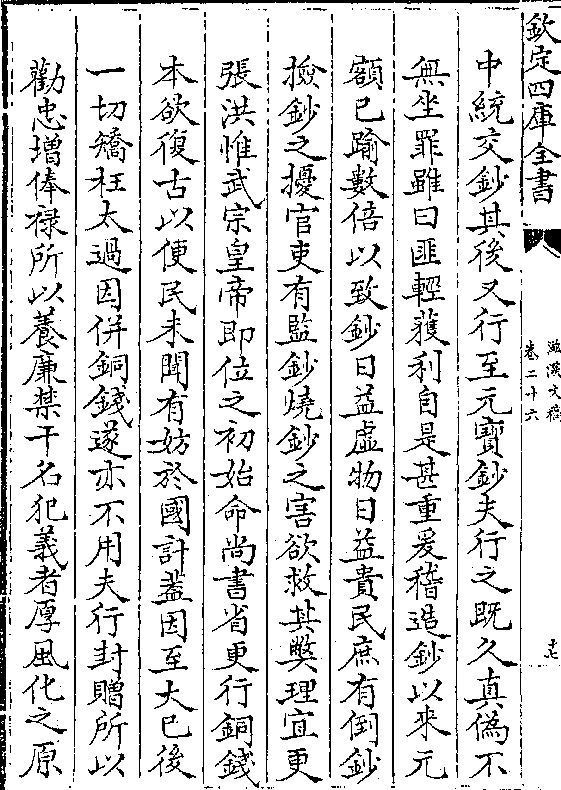 欽定四庫全書
滋溪文稿
卷二十六
中統交鈔其後又行至元寶鈔夫行之既久真偽不
無坐罪雖曰匪輕獲利自是甚重爰稽造鈔以來元
額已踰數倍以致鈔日益虛物日益貴民庶有倒鈔
撿鈔之擾官吏有監鈔燒鈔之害欲救其弊理宜更
張洪惟武宗皇帝即位之初始命尚書省更行銅錢
本欲復古以便民未聞有妨於國計葢因至大已後
一切矯枉太過因併銅錢遂亦不用夫行封贈所以
勸忠增俸禄所以養廉禁干名犯義者厚風化之原